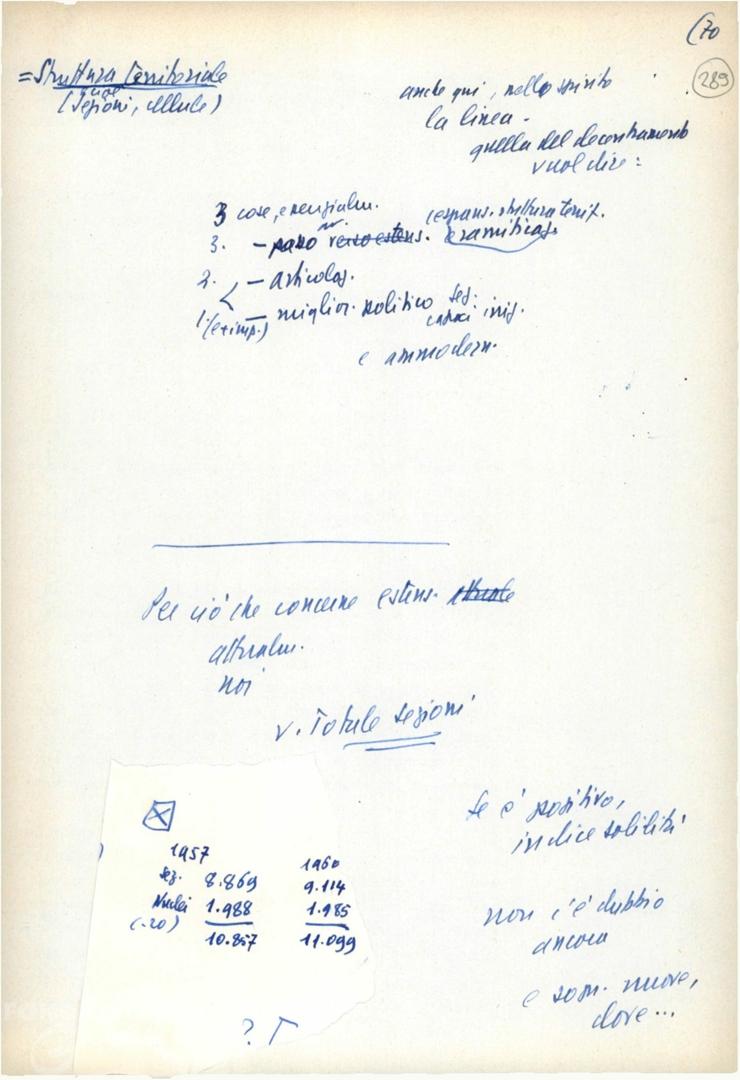 (70
289
= Struttura territoriale
(sezioni, cellule)
anche qui, nello spirito
la linea -
quella del decentramento
vuol dire:
3 cose, essenzialm.
3. - passo verso estens. (espans. struttura territ.
e ramificaz.
2. - articolaz.
1. (e + imp.) - miglior. politico sez.
capaci iniz.
e ammodern.
Per ciò che concerne estens. attuale
attualm.
noi
v. Totale sezioni
1957 1960
Sez. 8.869 9.114
Nuclei 1.988 1.985
(-20)
10.857 11.099
? T
Se è positivo,
indice solidità
non c'è dubbio
ancora
e sopr. nuove,
dove...